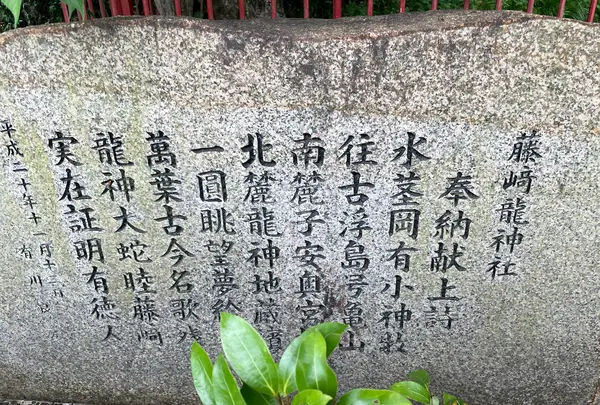 藤﨑龍神社
奉納献上詩
水茎岡有小神救
往古浮島号亀山
南麓子安奥宮
北麓龍神地蔵
一圓眺望夢絵
萬葉古今名歌残
龍神大蛇睦藤﨑
実在証明有徳人
平成二十年十一月十三
有川